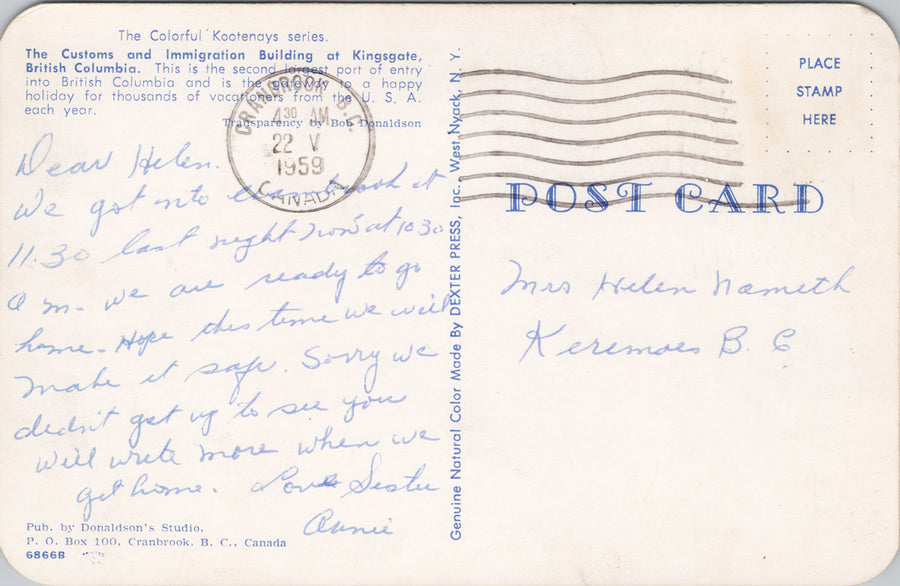 The Colorful Kootenays series.
The Customs and Immigration Building at Kingsgate,
British Columbia. This is the second largest port of entry
into British Columbia and is the gateway to a happy
holiday for thousands of vacationers from the U. S. A.
each year.
Transparency by Bob Donaldson
CRANBROOK B.C.
4 30 AM
22 V
1959
CANADA
Dear Helen.
We got into cranbrook at
11.30 last night now at 10 30
a m. we are ready to go
home. Hope this time we will
make it safe. Sorry we
didn't get up to see you
will write more when we
get home. Love Sister
Annie
Pub. by Donaldson's Studio.
P. O. Box 100, Cranbrook, B. C., Canada
6866B
Genuine Natural Color Made By DEXTER PRESS, Inc., West Nyack, N. Y.
PLACE
STAMP
HERE
POST CARD
Mrs Helen Nameth
Keremoes B. C.